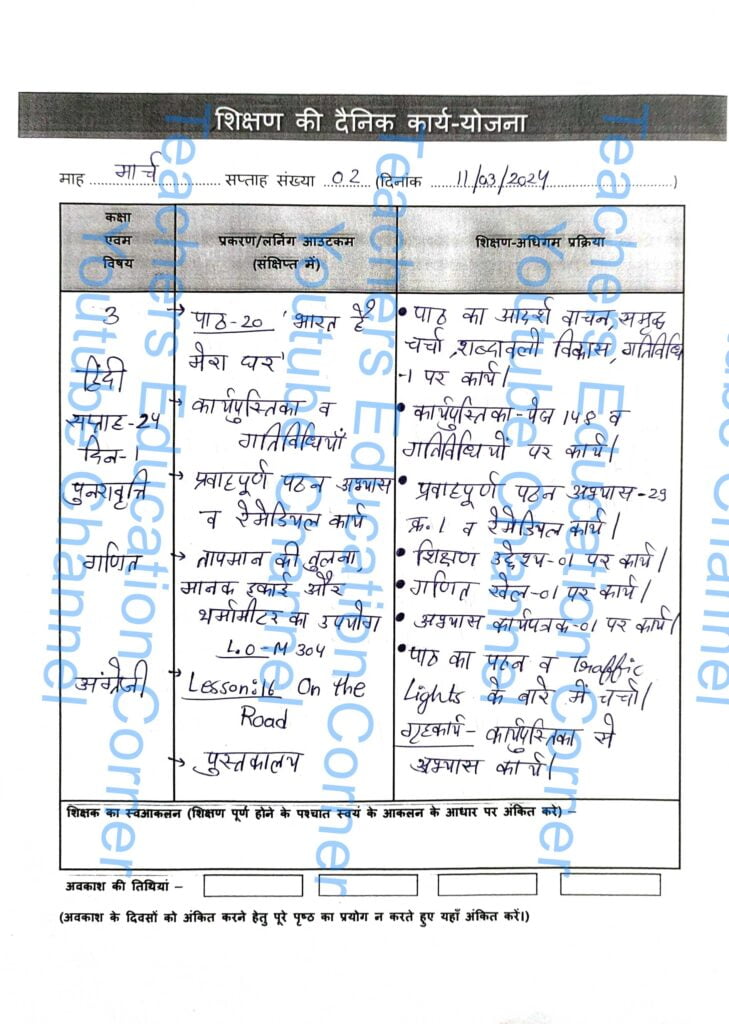 शिक्षण की दैनिक कार्य-योजना
माह मार्च सप्ताह संख्या 02 (दिनांक 11/03/2024)
कक्षा
एवम
विषय
प्रकरण/लर्निंग आउटकम
(संक्षिप्त में)
शिक्षण-अधिगम प्रक्रिया
3
हिंदी
सप्ताह-24
दिन-1
पुनरावृत्ति
→ पाठ-20 'भारत है
मेरा घर'
→ कार्यपुस्तिका व
गतिविधियाँ
→ प्रवाहपूर्ण पठन अभ्यास
व रेमेडियल कार्य
• पाठ का आदर्श वाचन, समूह
चर्चा, शब्दावली विकास, गतिविधि
-1 पर कार्य।
• कार्यपुस्तिका-पेज 148 व
गतिविधियों पर कार्य।
• प्रवाहपूर्ण पठन अभ्यास-29
क्र.1 व रेमेडियल कार्य।
गणित
→ तापमान की तुलना,
मानक इकाई और
थर्मामीटर का उपयोग
L.O-M 304
• शिक्षण उद्देश्य-01 पर कार्य।
• गणित खेल-01 पर कार्य।
• अभ्यास कार्यपत्रक-01 पर कार्य।
अंग्रेजी
→ Lesson:16 On the
Road
→ पुस्तकालय
• पाठ का पठन व Traffic
Lights के बारे में चर्चा।
गृहकार्य- कार्यपुस्तिका से
अभ्यास कार्य।
शिक्षक का स्वआकलन (शिक्षण पूर्ण होने के पश्चात स्वयं के आकलन के आधार पर अंकित करे) –
अवकाश की तिथियां –
(अवकाश के दिवसों को अंकित करने हेतु पूरे पृष्ठ का प्रयोग न करते हुए यहाँ अंकित करें।)
Teachers Education Corner
Youtube Channel
Teachers Education Corner
Youtube Channel
Teachers Education Corner
Youtube Channel